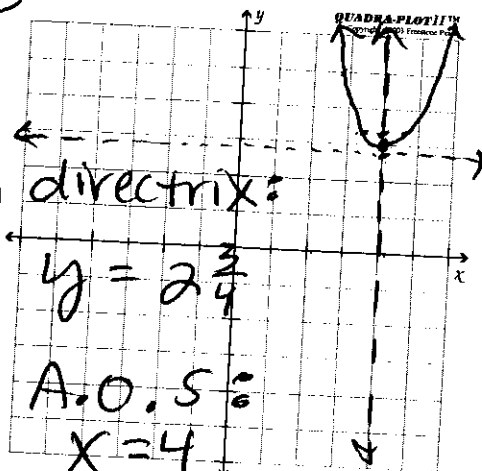 y
QUADRA-PLOT II™
directrix:
x
y = 2 3/4
A.O.S:
x = 4